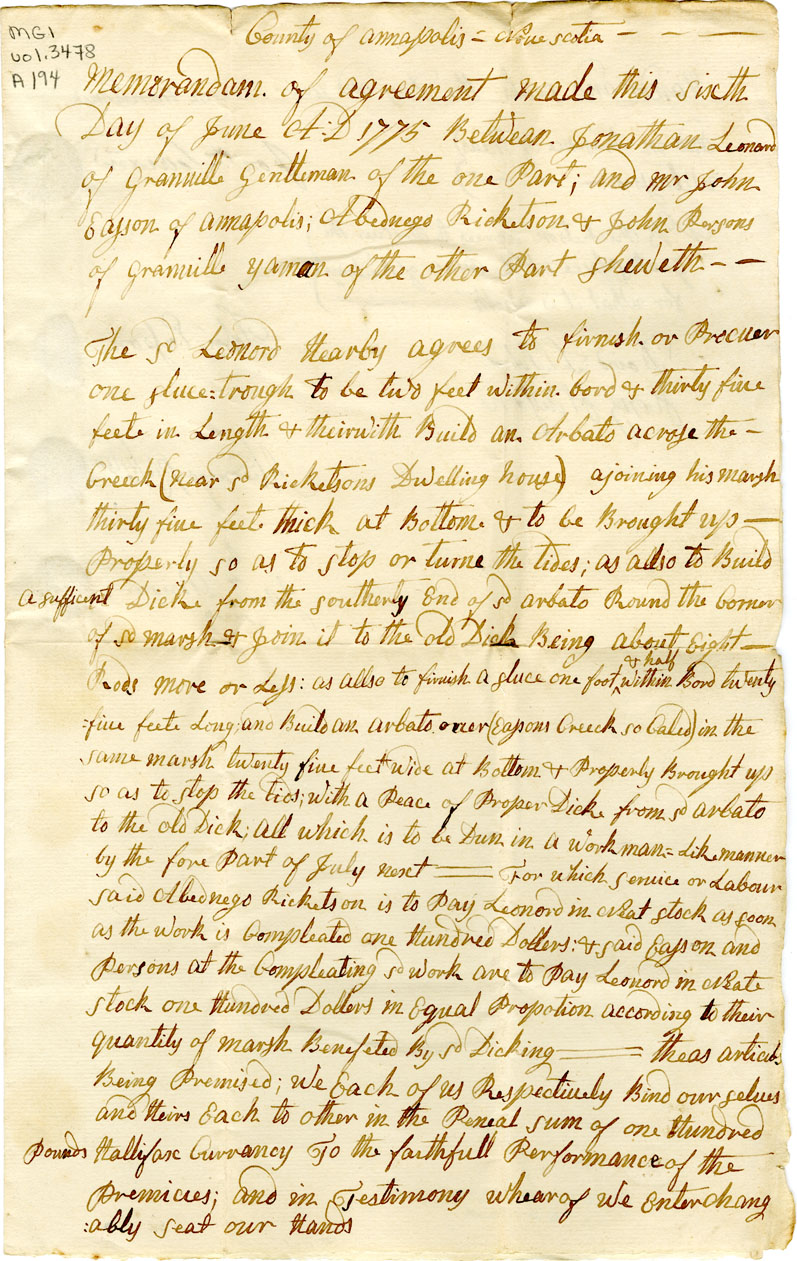 MG1
vol. 3478
A194
County of annapolis = Nove scotia - - - -
Memorandam of agreement made this sixth
Day of June A:D 1775 Betwean Jonathan Leonard
of Granville Gentleman of the one Part; and mr John
Eayson of annapolis; Abednego Ricketson & John Persons
of Granville yaman of the other Part sheweth - -
The sd Leonord Hearby agrees to firnish or Procuer
one sluce:trough to be two feet within bord & thirty five
feete in Length & theirwith Build an Arbato acrose the -
Creeck (near sd Ricketsons Dwelling house) ajoining his marsh
thirty five feete thick at Bottom & to be Brought up -
Properly so as to stop or turne the tides; as allso to Build
a sufficent Dicke from the southerly End of sd arbato Round the Corner
of sd marsh & Join it to the old Dick Being about Eight -
Rods more or Less: as allso to firnish a sluce one foot & half within Bord twenty
:five feete Long; and Build an arbato over (Eassons Creeck so Caled) in the
same marsh twenty five feet wide at Bottom & Properly Brought up
so as to stop the tids; with a Peace of Proper Dicke from sd arbato
to the old Dick; all which is to be Dun in a workman = Like manner
by the fore Part of July next == For which service or Labour
said Abednego Ricketson is to Pay Leonord in Neat stock as soon
as the work is Compleated one Hundred Dollers: & said Eayson and
Persons at the Compleating sd work are to Pay Leonord in Neate
stock one Hundred Dollers in Equal Propotion according to their
quantity of marsh Benefeted By sd Dicking == theas articles
Being Premised; we Each of us Respectively Bind our selves
and Heirs Each to other in the Peneal sum of one Hundred
Pounds Hallifax Currancy To the faithfull Performance of the
Premicies; and in Testimony whearof we Enterchang
:ably seat our Hands